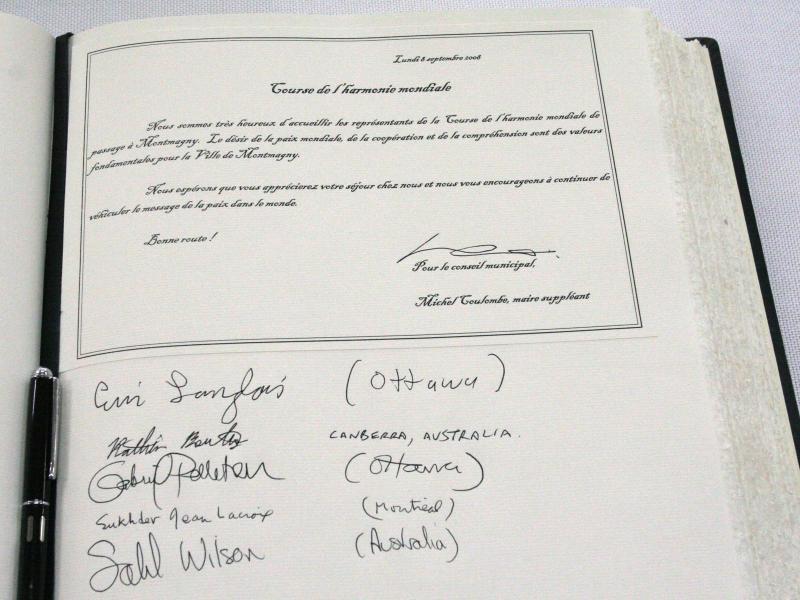 Lundi 8 septembre 2008
Course de l'harmonie mondiale
Nous sommes très heureux d'accueillir les représentants de la Course de l'harmonie mondiale de
passage à Montmagny. Le désir de la paix mondiale, de la coopération et de la compréhension sont des valeurs
fondamentales pour la Ville de Montmagny.
Nous espérons que vous apprécierez votre séjour chez nous et nous vous encourageons à continuer de
véhiculer le message de la paix dans le monde.
Bonne route !
Pour le conseil municipal,
Michel Coulombe, maire suppléant
Langlois (Ottawa)
CANBERRA, AUSTRALIA.
Pelletier (Ottawa)
Sukhdev Jean Lacroix (Montréal)
Wilson (Australia)